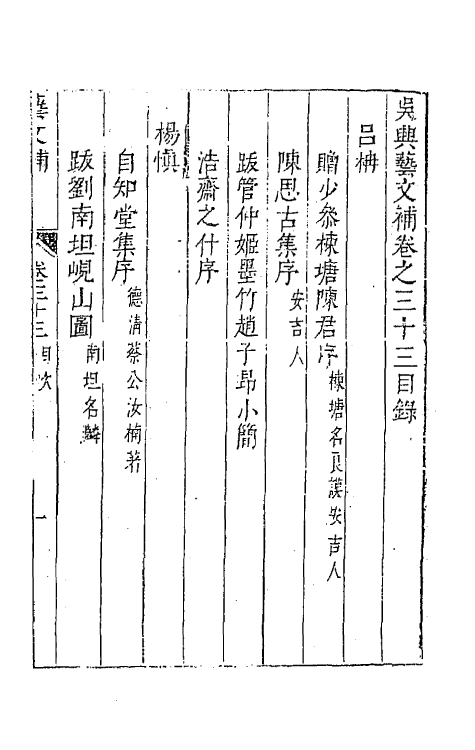 吳興藝文補卷之三十三目錄
呂柟
贈少叅棟塘陳君序棟塘名良謨安吉人
陳思古集序安吉人
跋管仲姬墨竹趙子昻小簡
浩齋之什序
楊慎
自知堂集序德清蔡公汝楠著
跋劉南坦峴山圖南坦名麟
藝文補 卷三十三目次 一